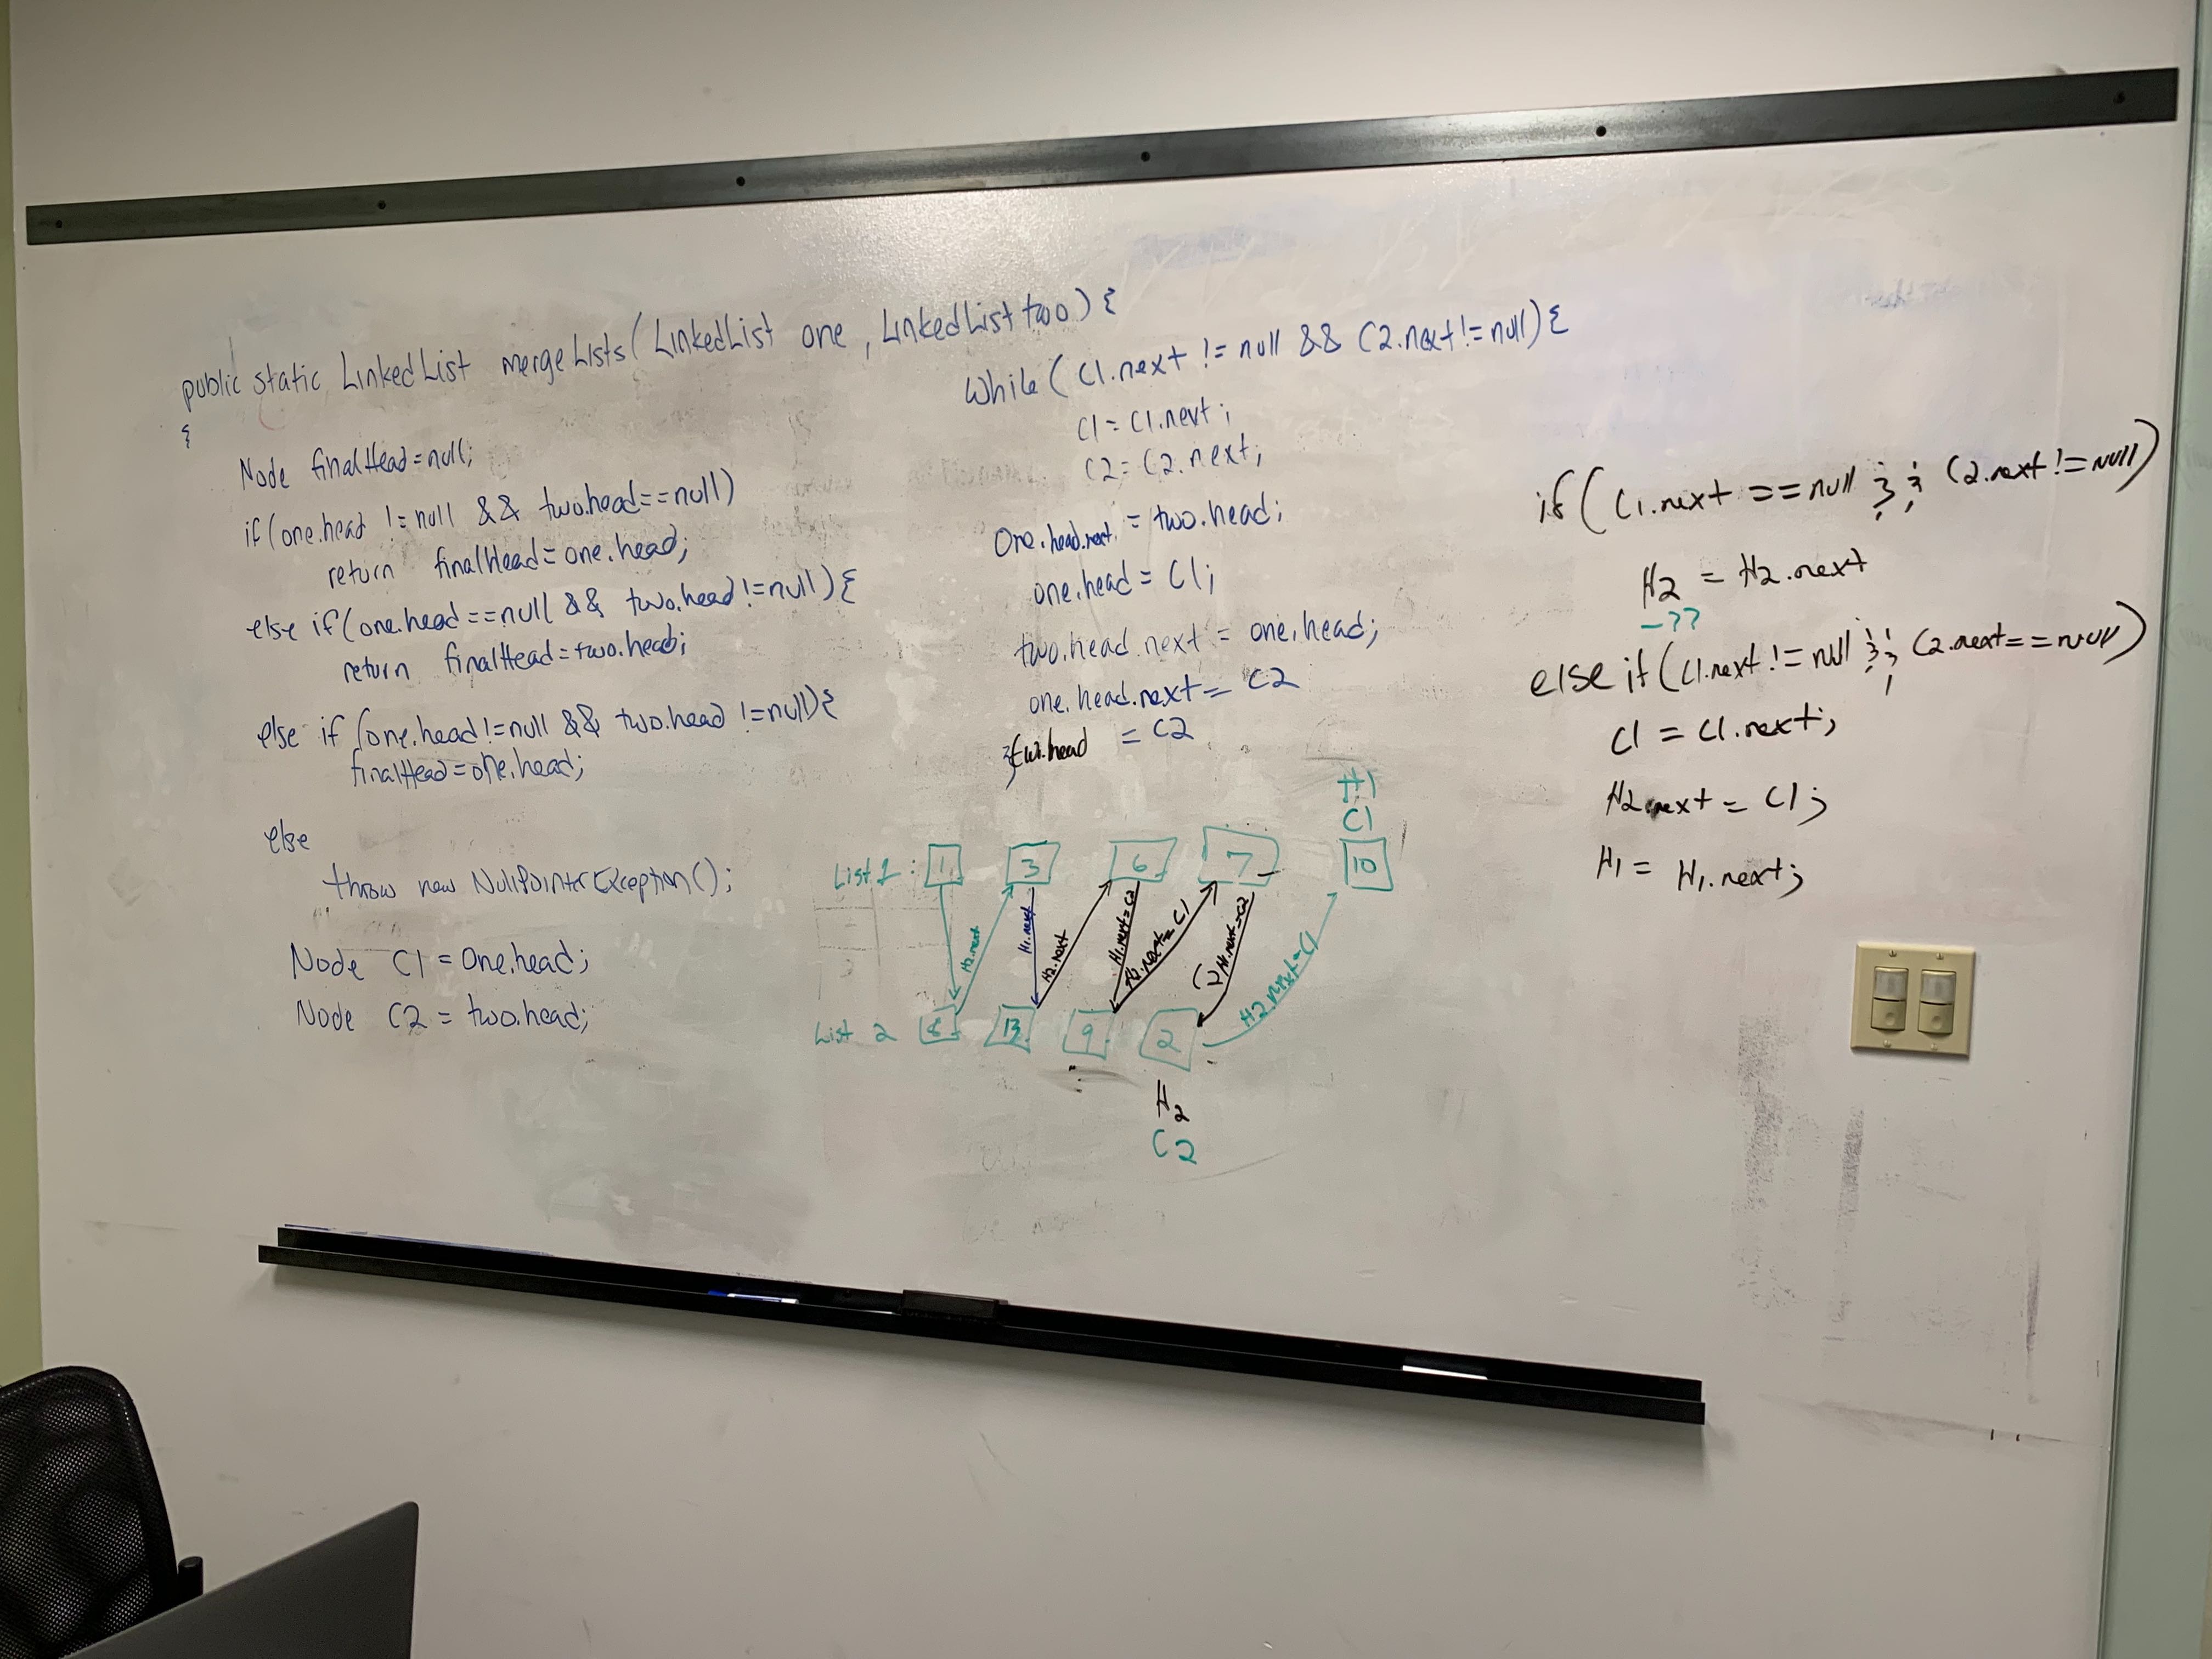 public static LinkedList mergeLists(LinkedList one, LinkedList two) {
{
Node finalHead=null;
if(one.head != null && two.head==null)
return finalHead=one.head;
else if(one.head==null && two.head!=null){
return finalHead=two.head;
else if (one.head!=null && two.head !=null){
finalHead=one.head;
else
throw new NullPointerException();
Node C1 = One.head;
Node C2 = two.head;
While(C1.next != null && C2.next!=null){
C1 = C1.next;
C2 = C2.next;
One.head.next = two.head;
one.head = C1;
two.head.next = one.head;
one.head.next = C2
}two.head = C2
H1
C1
List 1: 1 3 6 7 10
H2.next
H1.next
H2.next
H1.next=C2
H2.next=C1
C2 H1.next=C2
H2.next=C1
List 2 8 13 9 2
H2
C2
if(C1.next ==null && C2.next!=null)
H2 = H2.next
-??
else if(C1.next!=null && C2.next==null)
C1 = C1.next;
H2.next = C1;
H1 = H1.next;